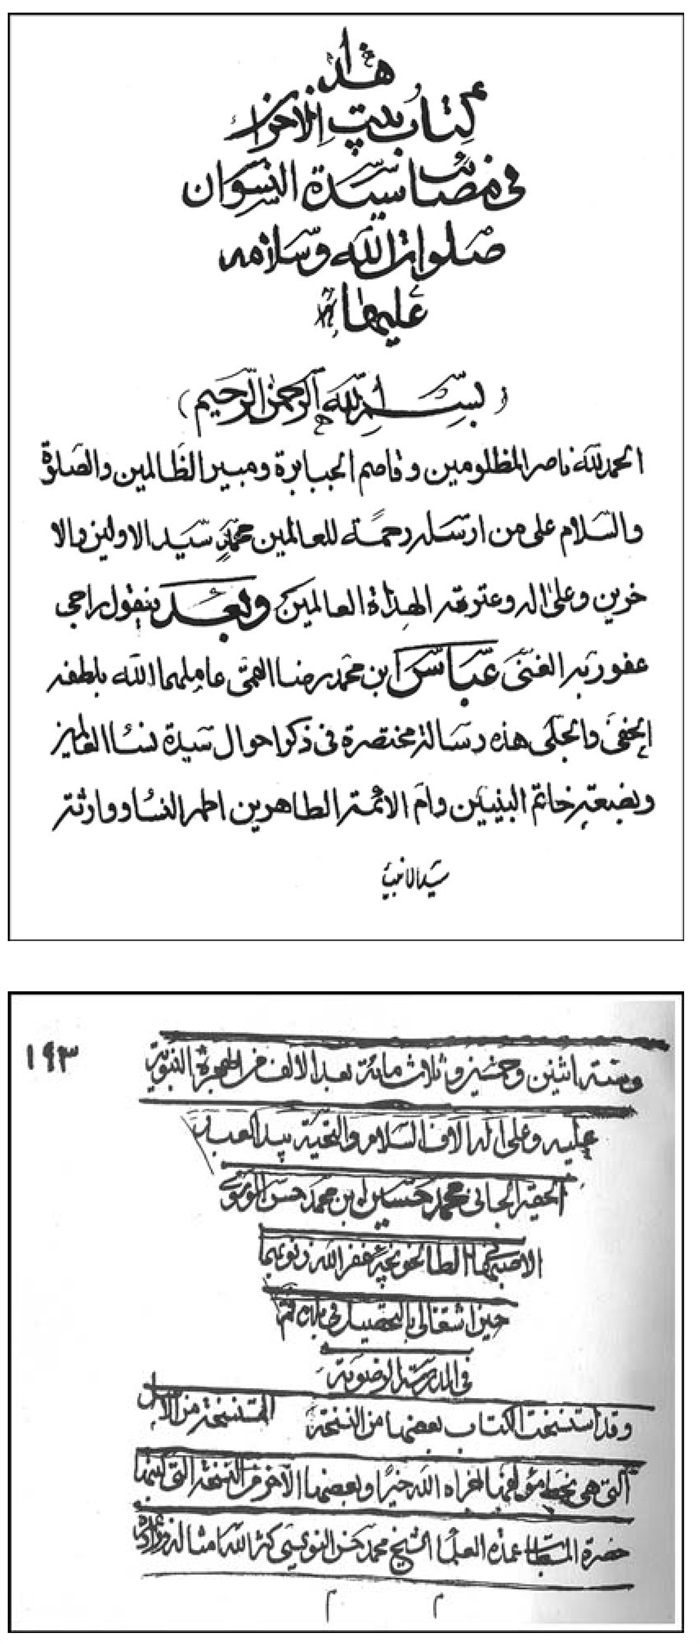 هذا
كتاب بيت الاحزان
في مصائب سيدة النسوان
صلوات الله وسلامه
عليها
(بسم الله الرحمن الرحيم)
الحمد لله ناصر المظلومين وقاصم الجبابرة ومبير الظالمين والصلوة
والسلام على من ارسله رحمة للعالمين محمد سيد الاولين والا
خرين وعلى اله وعترته الهداة العالمين وبعد فيقول راجى
عفو ربه الغنى عباس ابن محمد رضا القمى عاملهما الله بلطفه
الخفى والجلى هذه رسالة مختصرة فى ذكر احوال سيدة نساء العالمين
وبضعة خاتم النبيين وام الائمة الطاهرين اطهر النساء ووارثة
سيد الانبياء
١٩٣
وسنة اثنين وخمسين وثلاث مائة بعد الالف من الهجرة النبوية
عليه وعلى اله الاف السلام والتحية بيد العبد
الحقير الجانى محمد حسين ابن محمد حسن
الاصبهانى غفر الله ذنوبهما
حين اشتغالى بالتحصيل فى بلدة قم
فى المدرسة الرضوية
وقد استنسخت الكتاب بعضها من النسخة المستنسخة من الاصل
التى هى بخط مؤلفها جزاه الله خيرا وبعضها الاخر من النسخة التى كتبها
حضرة عمدة العلماء الشيخ محمد حسن النويسى كثر الله امثاله
م م